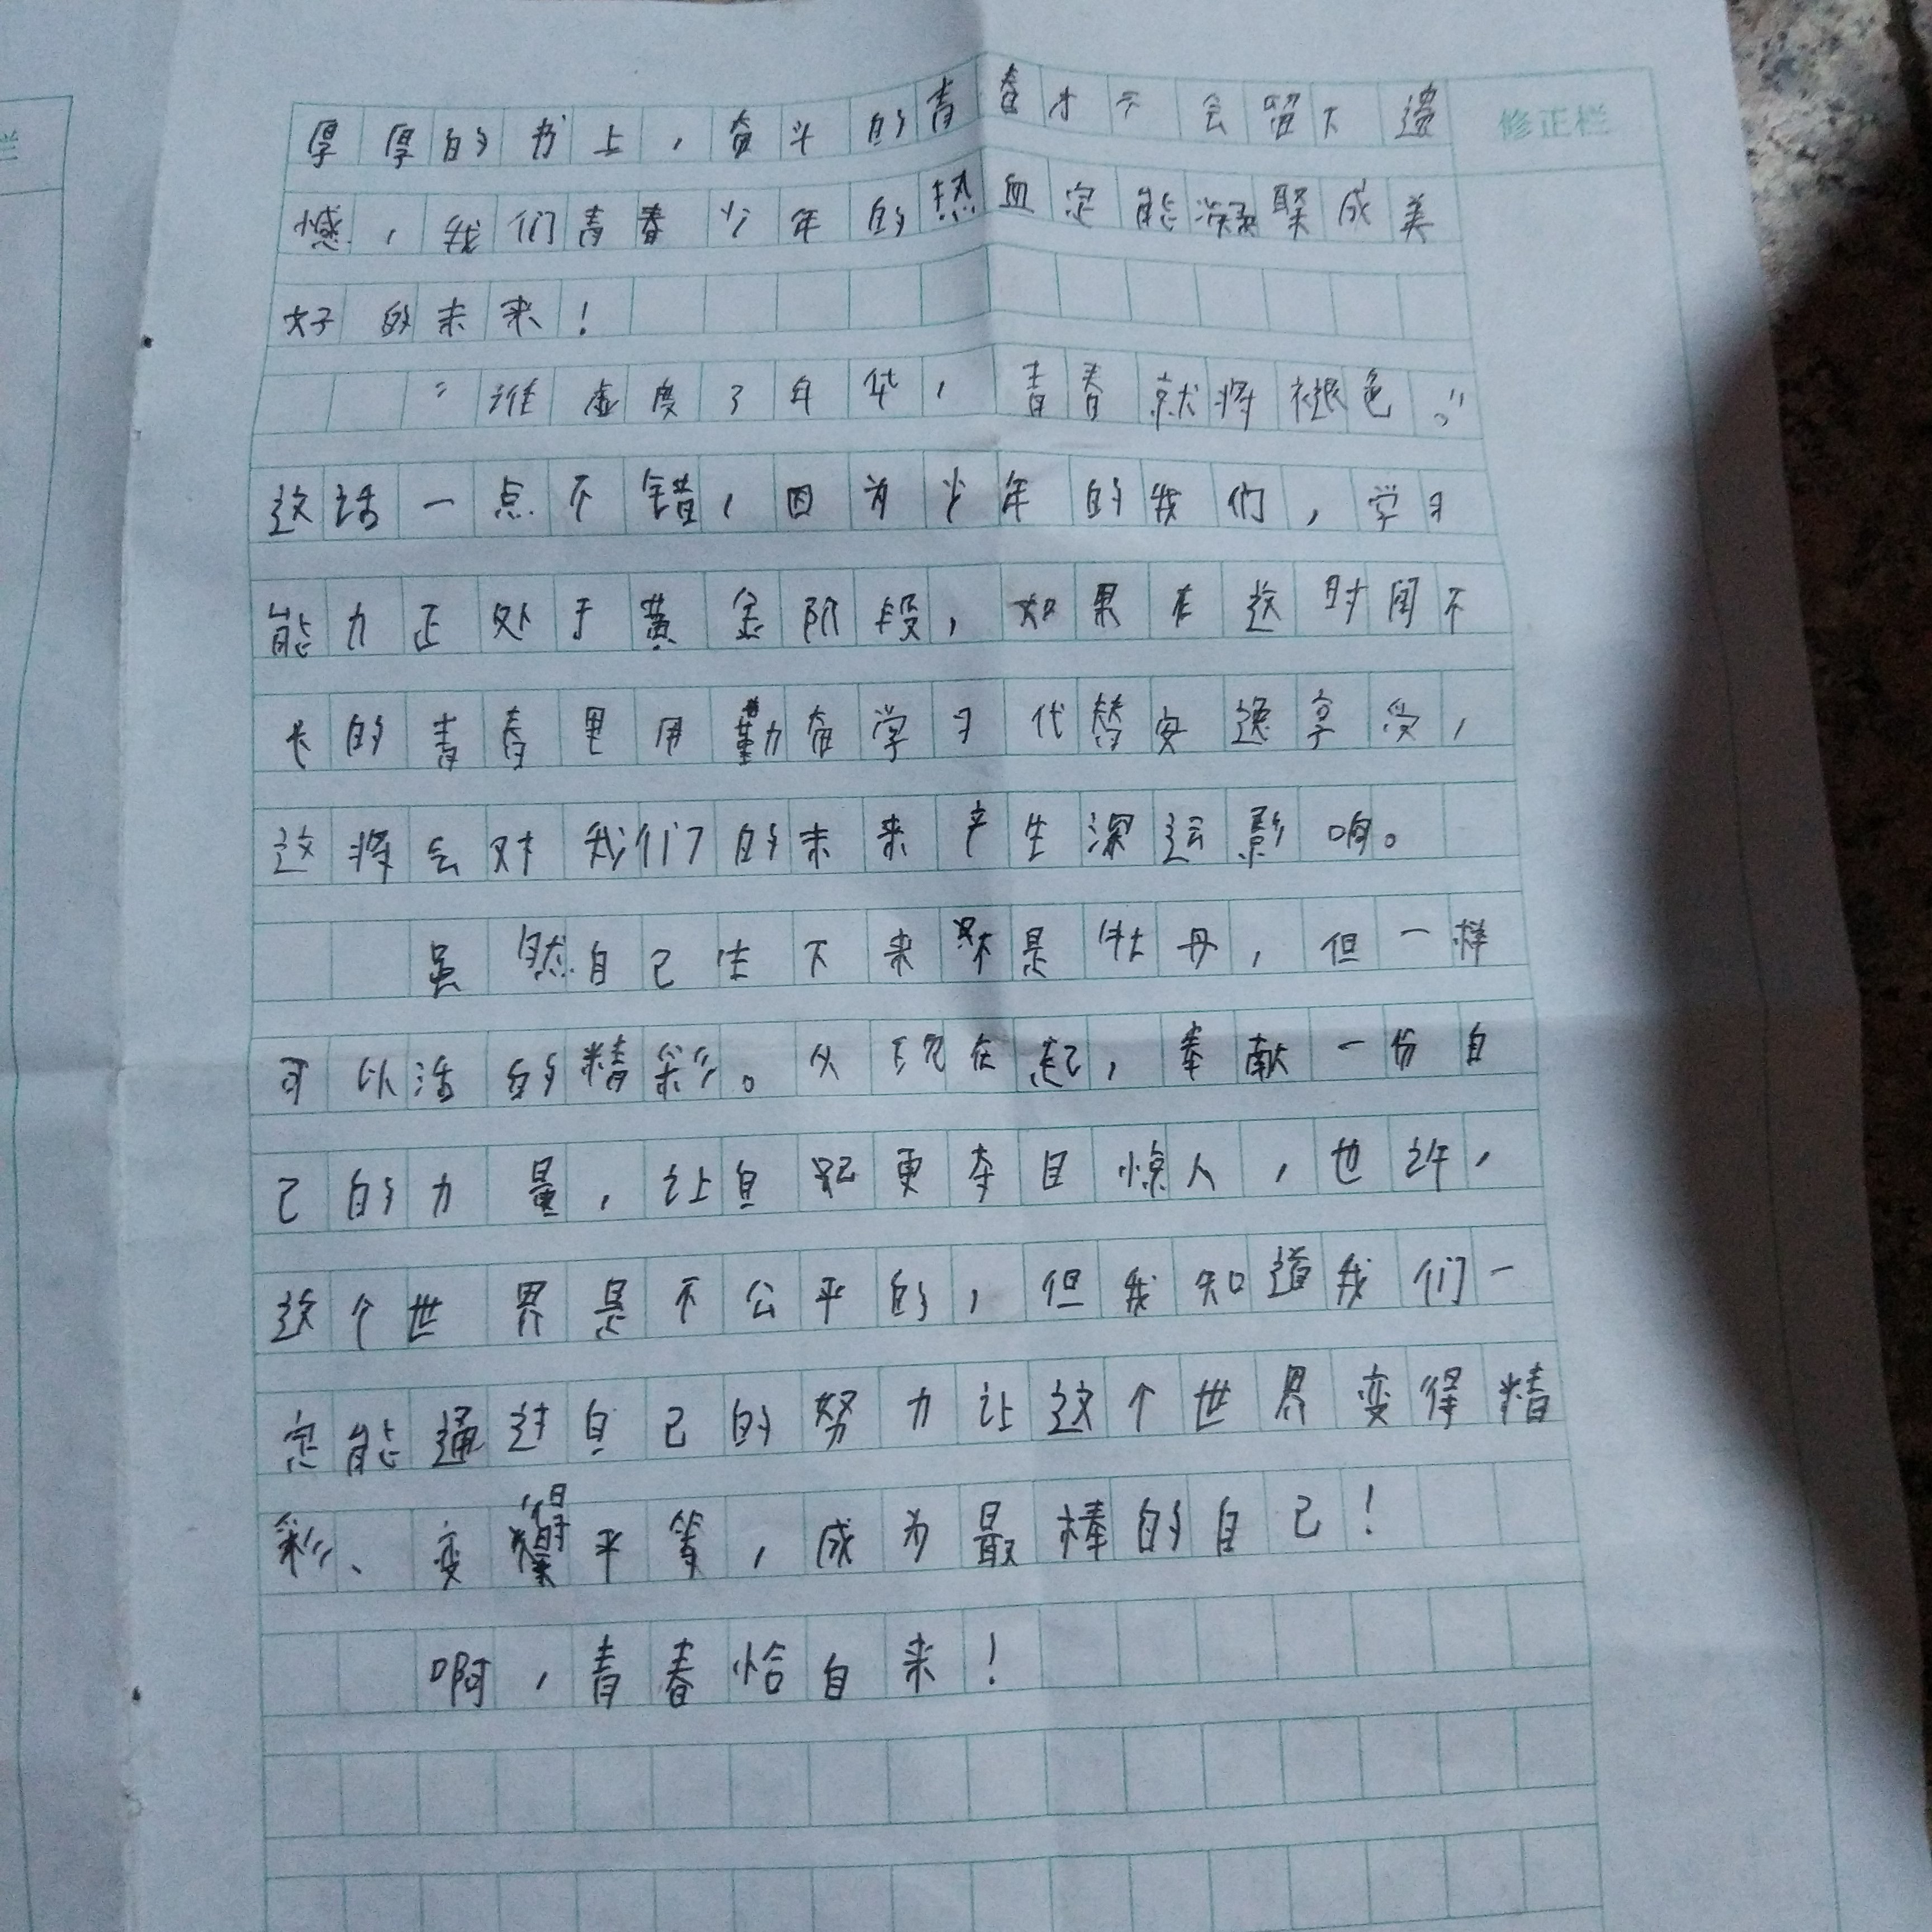 厚厚的书上，奋斗的青春才不会留下遗
修正栏
憾，我们青春少年的热血定能凝聚成美
好的未来！
“谁虚度了年华，青春就将褪色。”
这话一点不错，因为少年的我们，学习
能力正处于黄金阶段，如果在这时间不
长的青春里用勤奋学习代替安逸享受，
这将会对我们的未来产生深远影响。
虽然自己生下来不是牡丹，但一样
可以活的精彩。从现在起，奉献一份自
己的力量，让自己更夺目惊人，也许，
这个世界是不公平的，但我知道我们一
定能通过自己的努力让这个世界变得精
彩、变得平等，成为最棒的自己！
啊，青春恰自来！